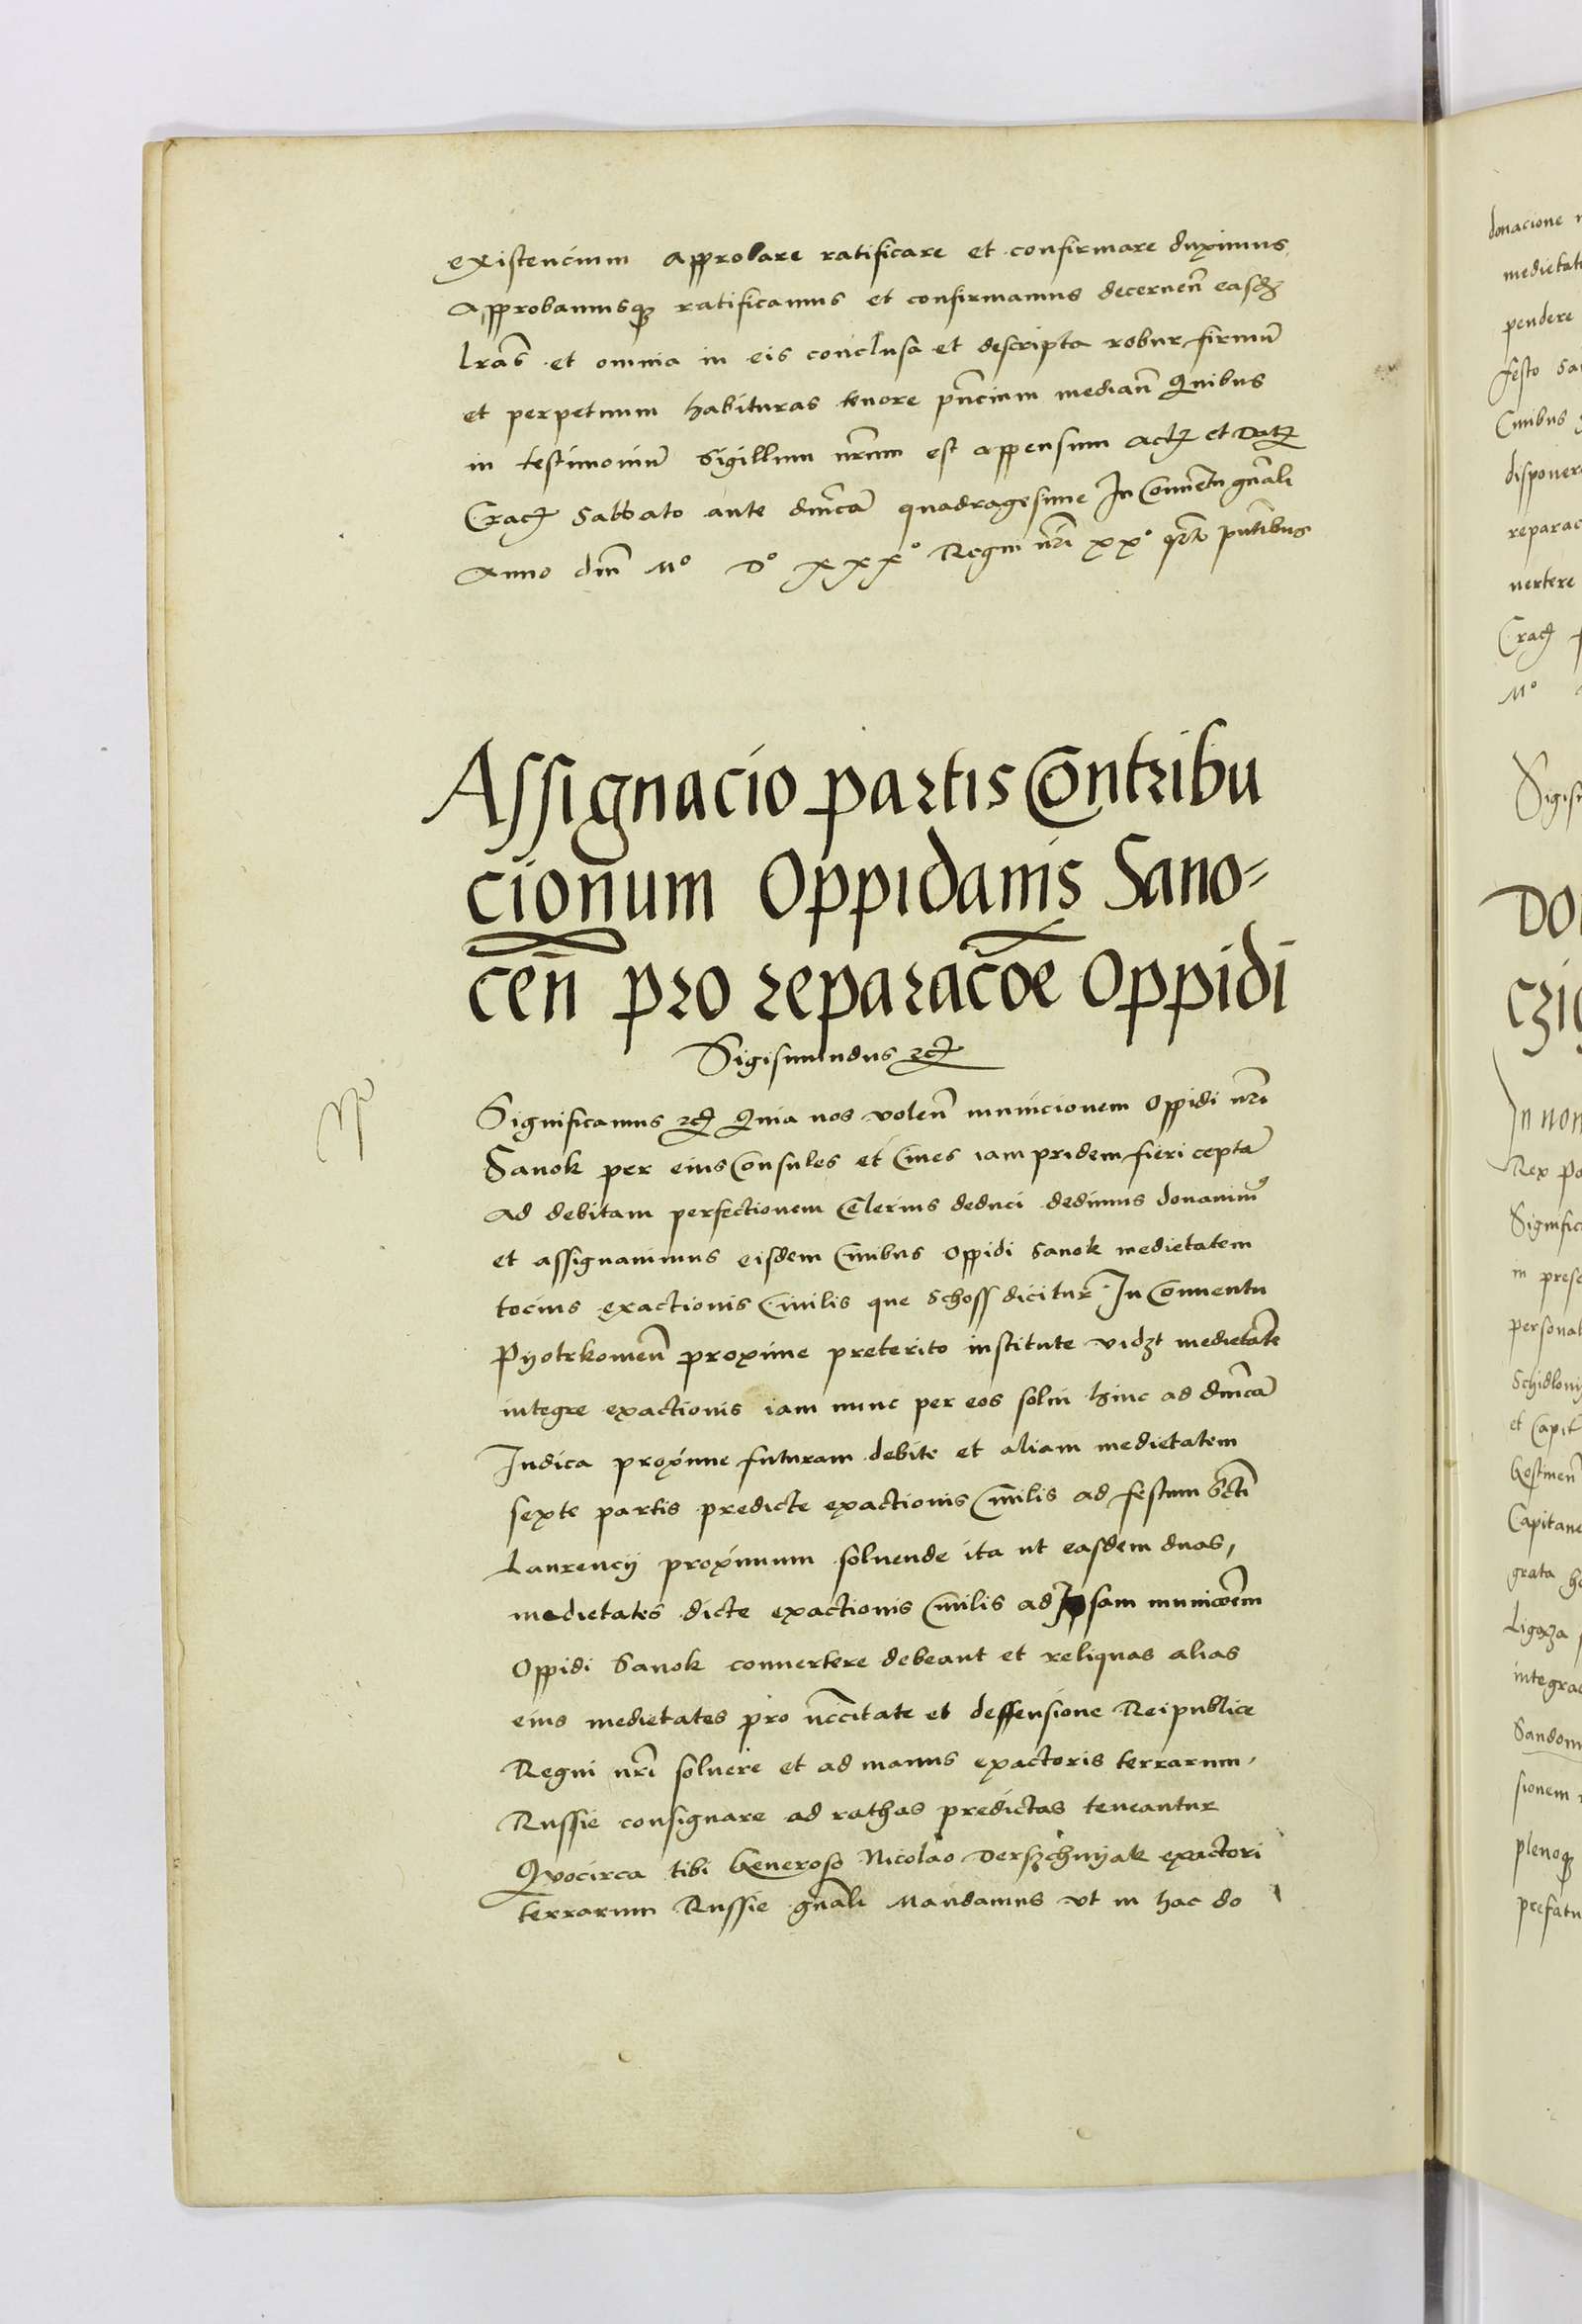 existencium approbare ratificare et confirmare duximus
approbamusqꝫ ratificamus et confirmamus decernen̄ easdꝫ
lrās et omnia in eis conclusa et descripta robur firmū
et perpetuum habituras tenore pn̄cium median̄ Quibus
in testimoniū Sigillum nrūm est appensum Actꝫ et Datꝫ
Cracꝫ Sabbato ante dnīcā quadragesime In Conuentu gnāli
Anno dnī Mº Dº xxxº Regni nrī xxº qrto pn̄tibus
Assignacio partis Contribu
cionum Oppidanis Sano=
cen̄ pro reparacōe Oppidi
Sigismundus ꝛcꝫ
Significamus ꝛcꝫ Quia nos volen̄ municionem Oppidi nrī
Sanok per eius Consules et Ciues iam pridem fieri ceptā
Ad debitam perfectionem Celerius deduci dedimus donauim9
et assignauimus eisdem Ciuibus Oppidi Sanok medietatem
tocius exactionis Ciuilis que Schoss dicitur In Conuentu
Pyotrkouien̄ proxime preterito institute vidꝫt medietatē
integre exactionis iam nunc per eos solui hinc ad dnīcā
Iudica proxime futuram debite et aliam medietatem
sexte partis predicte exactionis Ciuilis ad festum sctī
Laurencij proximum soluende ita ut easdem duas,
medietates dicte exactionis Ciuilis ad Ipsam municōem
Oppidi Sanok conuertere debeant et reliquas alias
eius medietates pro nccītate et deffensione Reipublice
Regni nrī soluere et ad manus exactoris terrarum,
Russie consignare ad rathas predictas teneantur
Quocirca tibi Generoso Nicolao Derszchnyak exactori
terrarum Russie gnāli Mandamus vt in hac do
donacione
pendere
festo
Ciuibus
uertere
Cracꝫ
Mº
In nom
Rex Po
personal
et Capit
grata
Ligęza
sionem
plenoqꝫ
prefatu